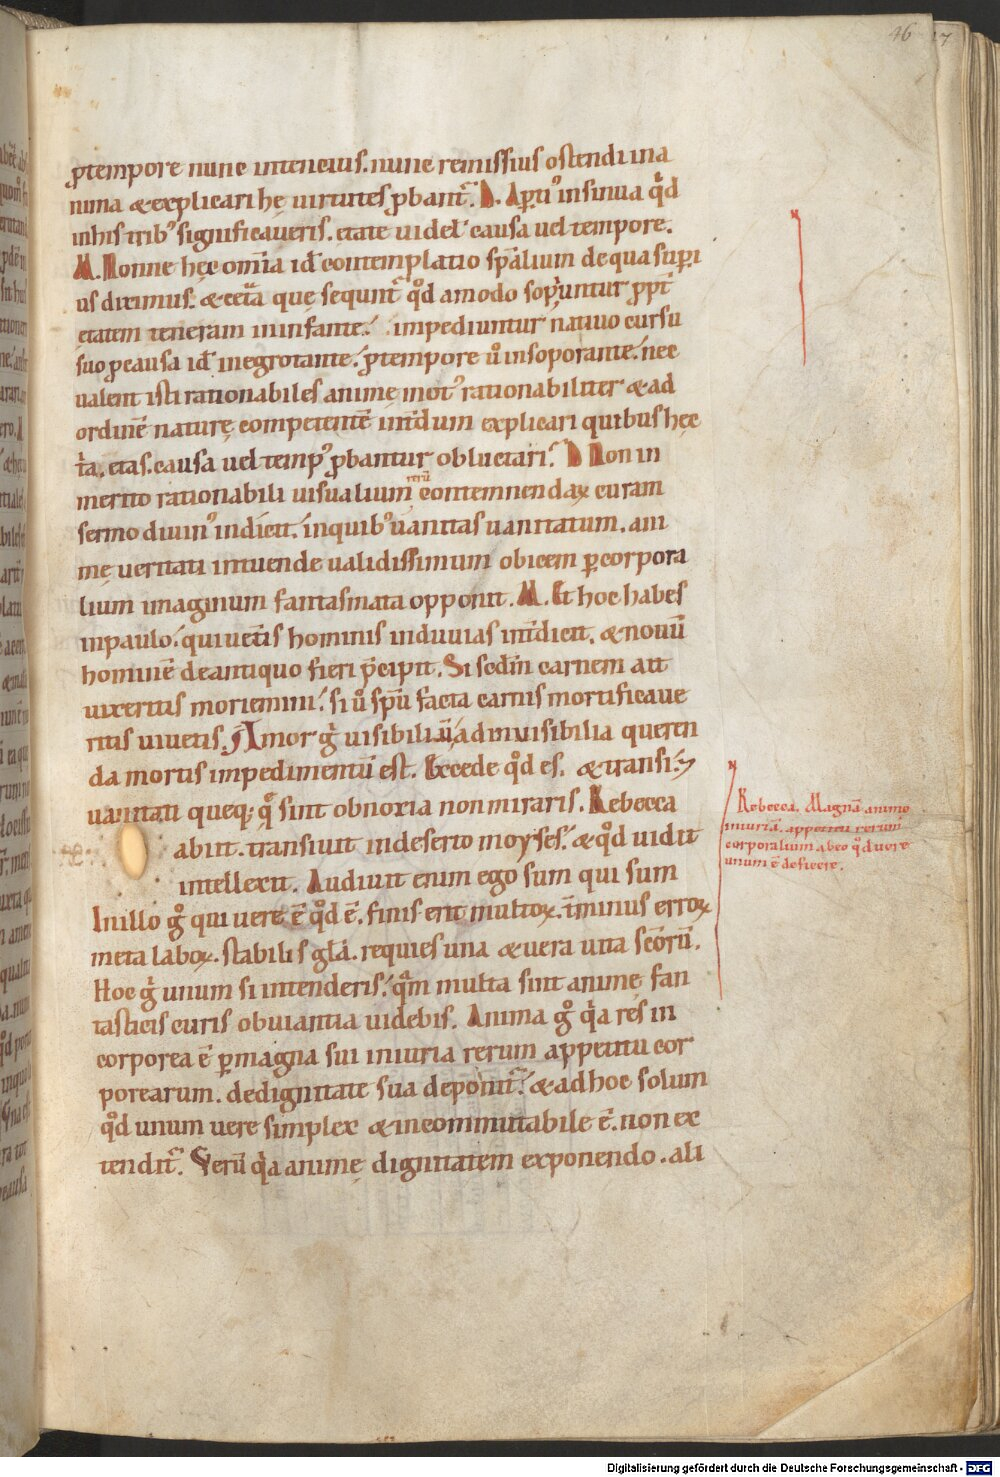 46 17
ꝓtempore nunc intencius. nunc remissius ostendi in a
nima & explicari hę uirtutes ꝓbant᷑. D. Aꝑti᷒ insinua qͦd
inhis trib᷒ significaueris. etate uidel᷒ causa uel tempore.
M. Nonne hęc om̄ia id contemplatio sp̄alium de qua supͥ
us diximus. & cet̄a que sequnt᷑ qͦd amodo sop̄untur ꝓpt̄
etatem teneram in infante. impediuntur natiuo cursu
suo ꝓ causa id in egrotante. ꝓ tempore u̓ in soporante. nec
ualent isti rationabiles animę mot᷒ rationabiliter & ad
ordinē naturę competentē int̄dum explicari quibus hęc
t̄a. etas. causa uel temp᷒ ꝓbantur obluctari. D Non in
rerū
merito rationabili uisualium contemnendaꝝ curam
sermo diuin᷒ indicit. in quib᷒ uanitas uanitatum. ani
mę ueritati intuende ualidissimum obicem ꝑ corpora
lium imaginum fantasmata opponit. M. Et hoc habes
in paulo. qui uet̄is hominis induuias int̄dicit. & nouū
hominē de antiquo fieri p̄cipit. Si scd̄m carnem ait
uixeritis moriemini. si u̓ sp̄u facta carnis mortificaue
ritis uiuetis. Amor gͦ uisibiliū ad inuisibilia queren
da mortis impedimentū est. Recede qͦd es. & transi.
uanitati queq; qͣ sint obnoxia non miraris. Rebecca
abiit. transiuit in deserto moyses. & qͦd uidit
intellexit. Audiuit enim ego sum qui sum
In illo gͦ qui uere ē qͦd ē. finis erit multoꝝ. t̄minus erroꝝ
meta laboꝝ. stabilis gl̄a. requies una & uera uita sc̄orū.
Hoc gͦ unum si intenderis. qͣm multa sint animę fan
tasticis curis obuiantia uidebis. Anima gͦ qͥa res in
corporea ē ꝑmagna sui iniuria rerum appetitu cor
porearum. de dignitate sua deponit᷑. & ad hoc solum
qͦd unum uere simplex & incommutabile ē. non ex
tendit᷑. Verū qͥa animę dignitatem exponendo. ali
Rebecca. Magna animę
iniuria. appetitu rerum
corporalium ab eo qͦd uere
unum ē deficere.
Digitalisierung gefördert durch die Deutsche Forschungsgemeinschaft - DFG